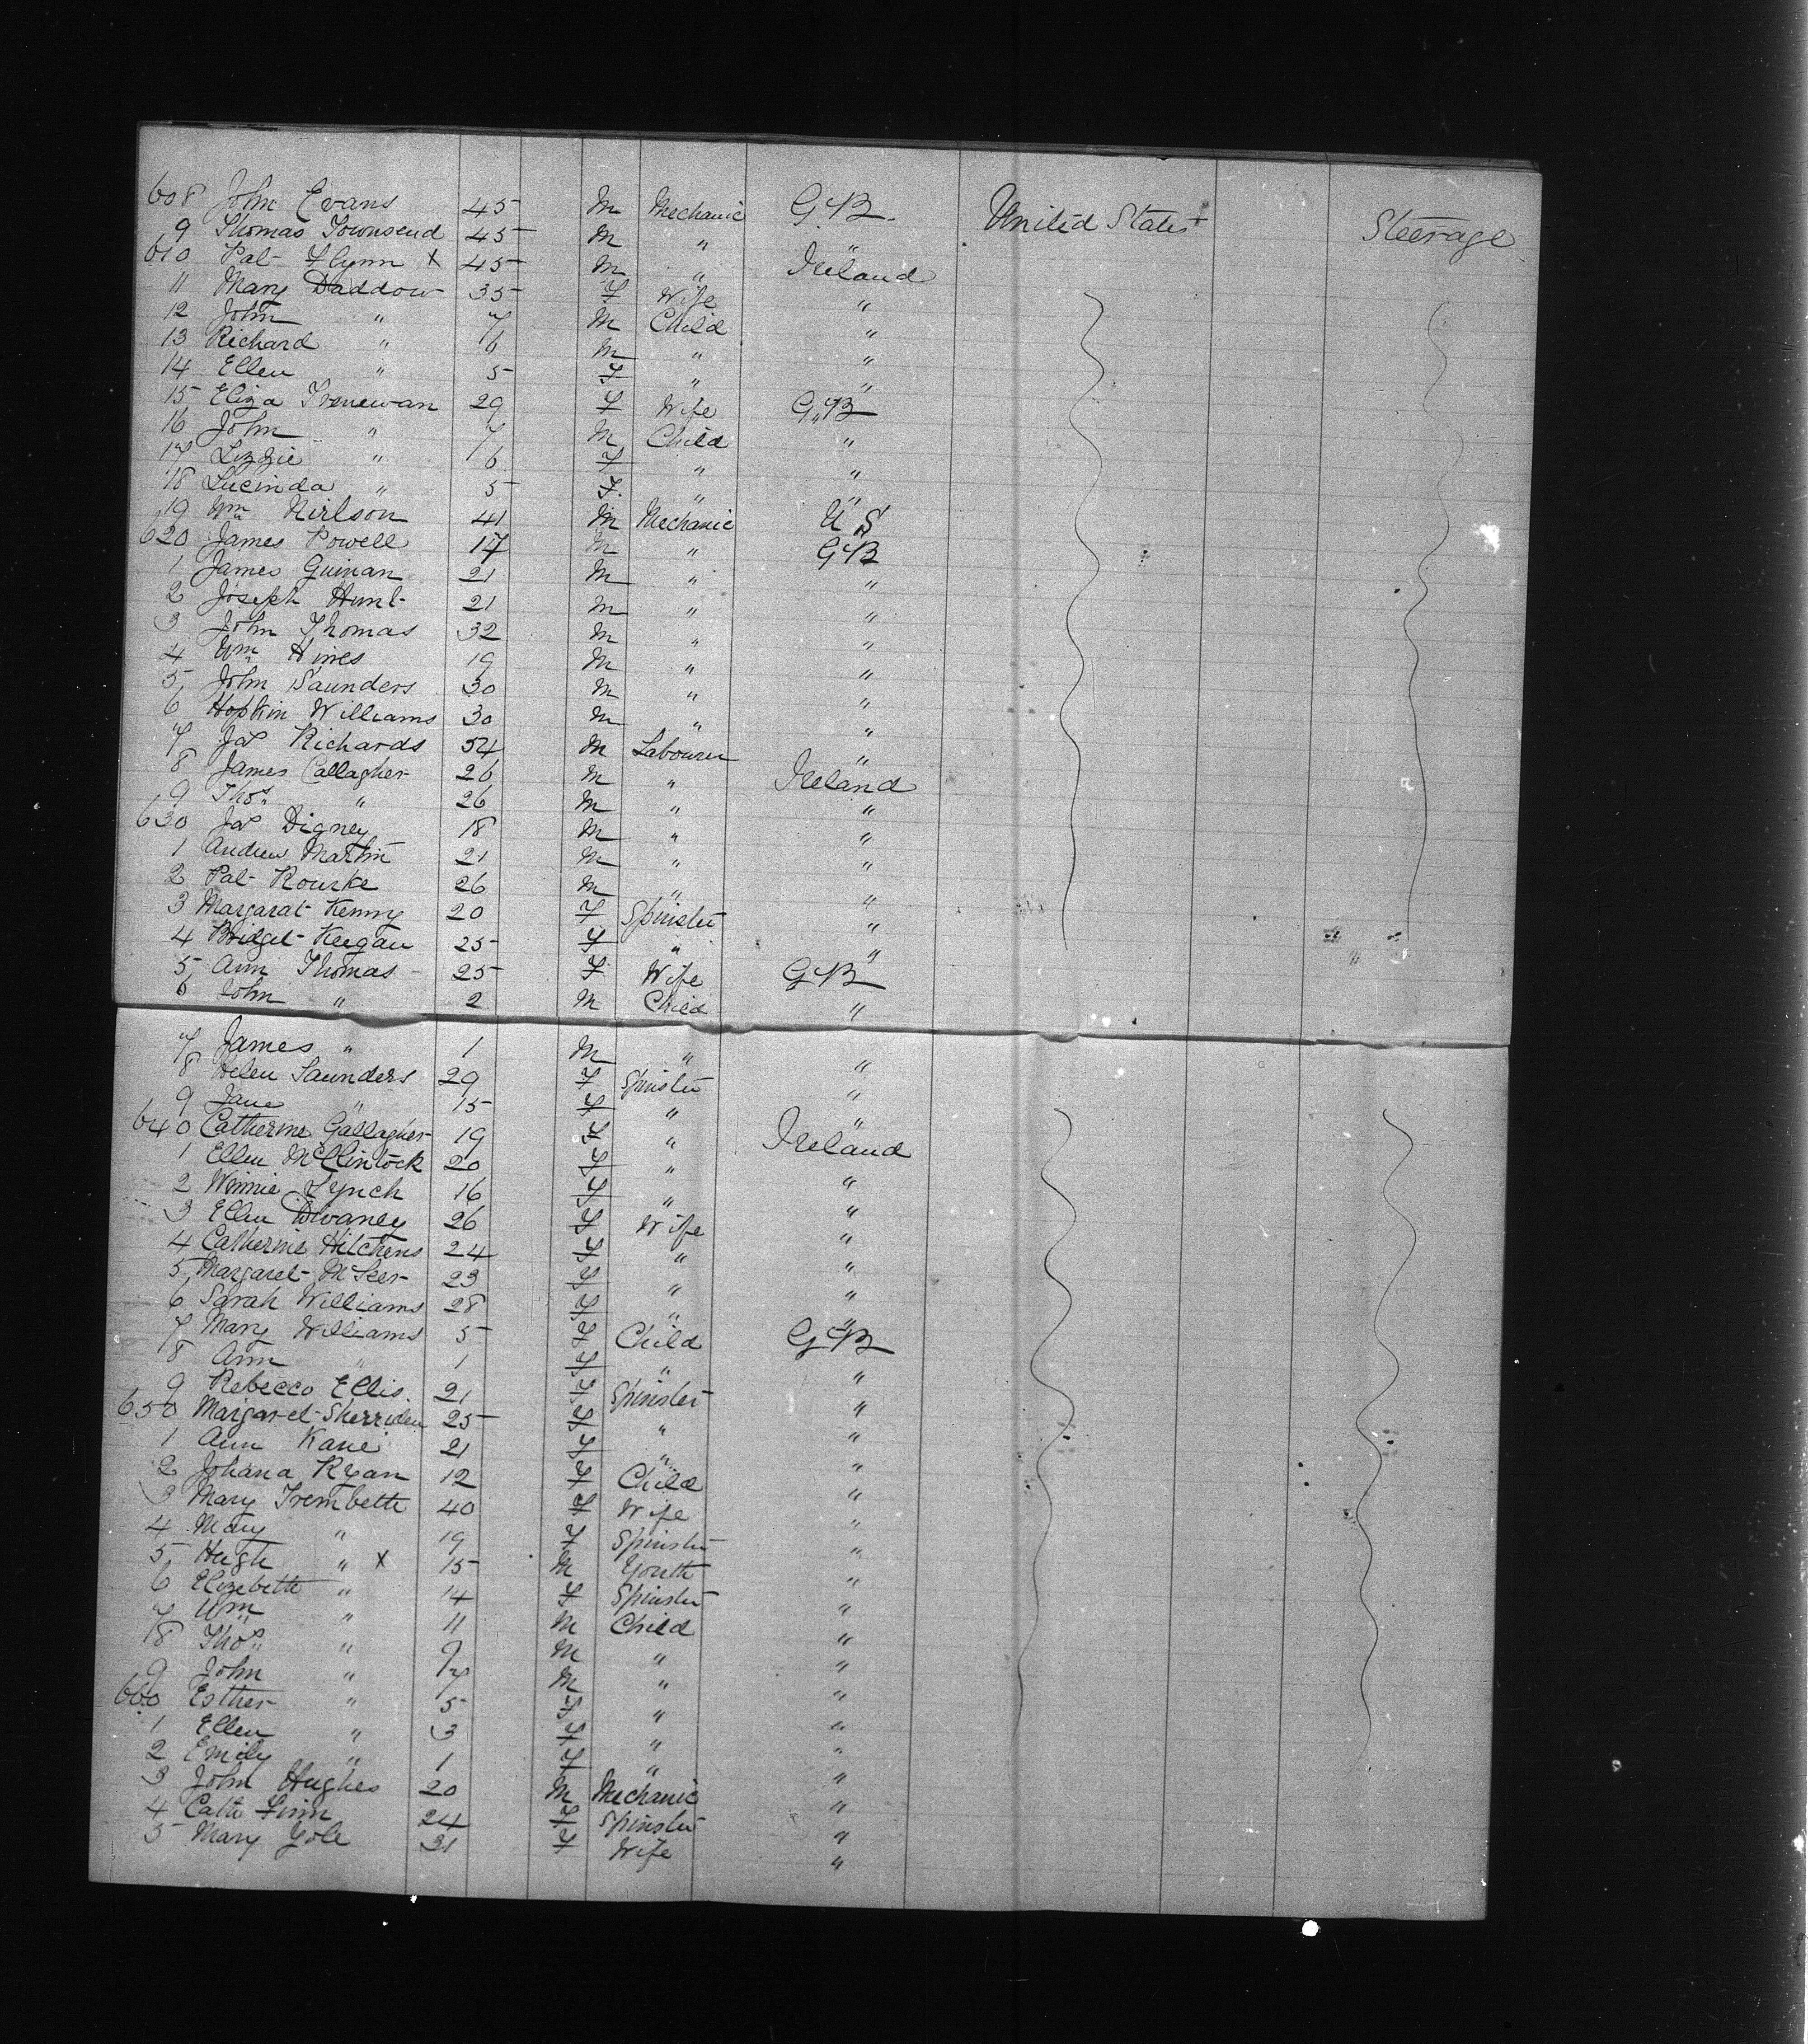 608 John Evans 45 M Mechanic G.B. United States Steerage
9 Thomas Townsend 45 M " "
610 Pat Flynn X 45 M " Ireland
11 Mary Daddow 35 F Wife "
12 John " 7 M Child "
13 Richard " 6 M " "
14 Ellen " 5 F " "
15 Eliza Trenewan 29 F Wife G.B
16 John " 7 M Child "
17 Lizzie " 6 F " "
18 Lucinda " 5 F. " "
19 Wm Neilson 41 M Mechanic U S
620 James Powell 17 M " G B
1 James Guinan 21 M " "
2 Joseph Hunt 21 M " "
3 John Thomas 32 M " "
4 Wm Hines 19 M " "
5 John Saunders 30 M " "
6 Hopkin Williams 30 M " "
7 Jas Richards 54 M Labourer "
8 James Callagher 26 M " Ireland
9 Thos " 26 M " "
630 Jas Digney 18 M " "
1 Andrew Martin 21 M " "
2 Pat Rourke 26 M " "
3 Margarat Kenny 20 F Spinster "
4 Bridget Keegan 25 F " "
5 Ann Thomas 25 F Wife G B
6 John " 2 M Child "
7 James " 1 M " "
8 Helen Saunders 29 F Spinster "
9 Jane " 15 F " "
640 Catherine Gallagher 19 F " Ireland
1 Ellen McClintock 20 F " "
2 Winnie Lynch 16 F " "
3 Ellen Divaney 26 F Wife "
4 Catherine Hitchens 24 F " "
5 Margaret 23 F " "
6 Sarah Williams 28 F " "
7 Mary Williams 5 F Child G B
8 Ann " 1 F " "
9 Rebecco Ellis. 21 F Spinster "
650 Margaret Sherriden 25 F " "
1 Ann Kane 21 F " "
2 Johana Ryan 12 F Child "
3 Mary Trembeth 40 F Wife "
4 Mary " 19 F Spinster "
5 Hugh " X 15 M Youth "
6 Elizebeth " 14 F Spinster "
7 Wm " 11 M Child "
8 Thos " 9 M " "
9 John " 7 M " "
660 Esther " 5 F " "
1 Ellen " 3 F " "
2 Emily " 1 F " "
3 John Hughes 20 M Mechanic "
4 Cath Finn 24 F Spinster "
5 Mary Yole 31 F Wife "